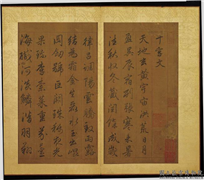 千字文
天地玄黃宇宙洪荒日月
盈昃辰宿列張寒來暑
往秋收冬藏閏餘成歲
律呂調陽雲騰致雨露
結為霜金生麗水玉出崑
岡劍號巨闕珠稱夜光
果珍李柰菜重芥薑
海鹹河淡鱗潛羽翔